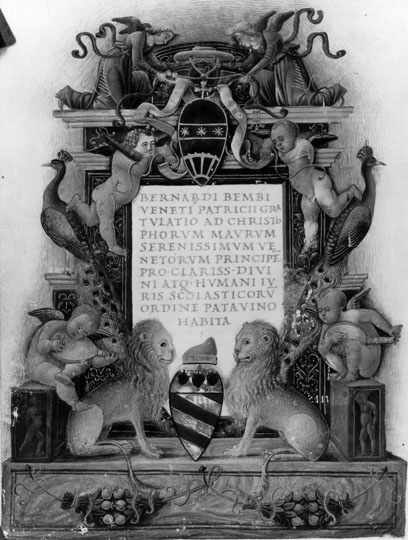 BERNARDI BEMBI
VENETI PATRICII GRA
TVLATIO AD CHRISTO
PHORVM MAVRVM
SERENISSIMVM VE
NETORVM PRINCIPE
PRO CLARISS · DIVI
NI ATQ · HVMANI IV
RIS SCOLASTICORV
ORDINE PATAVINO
HABITA